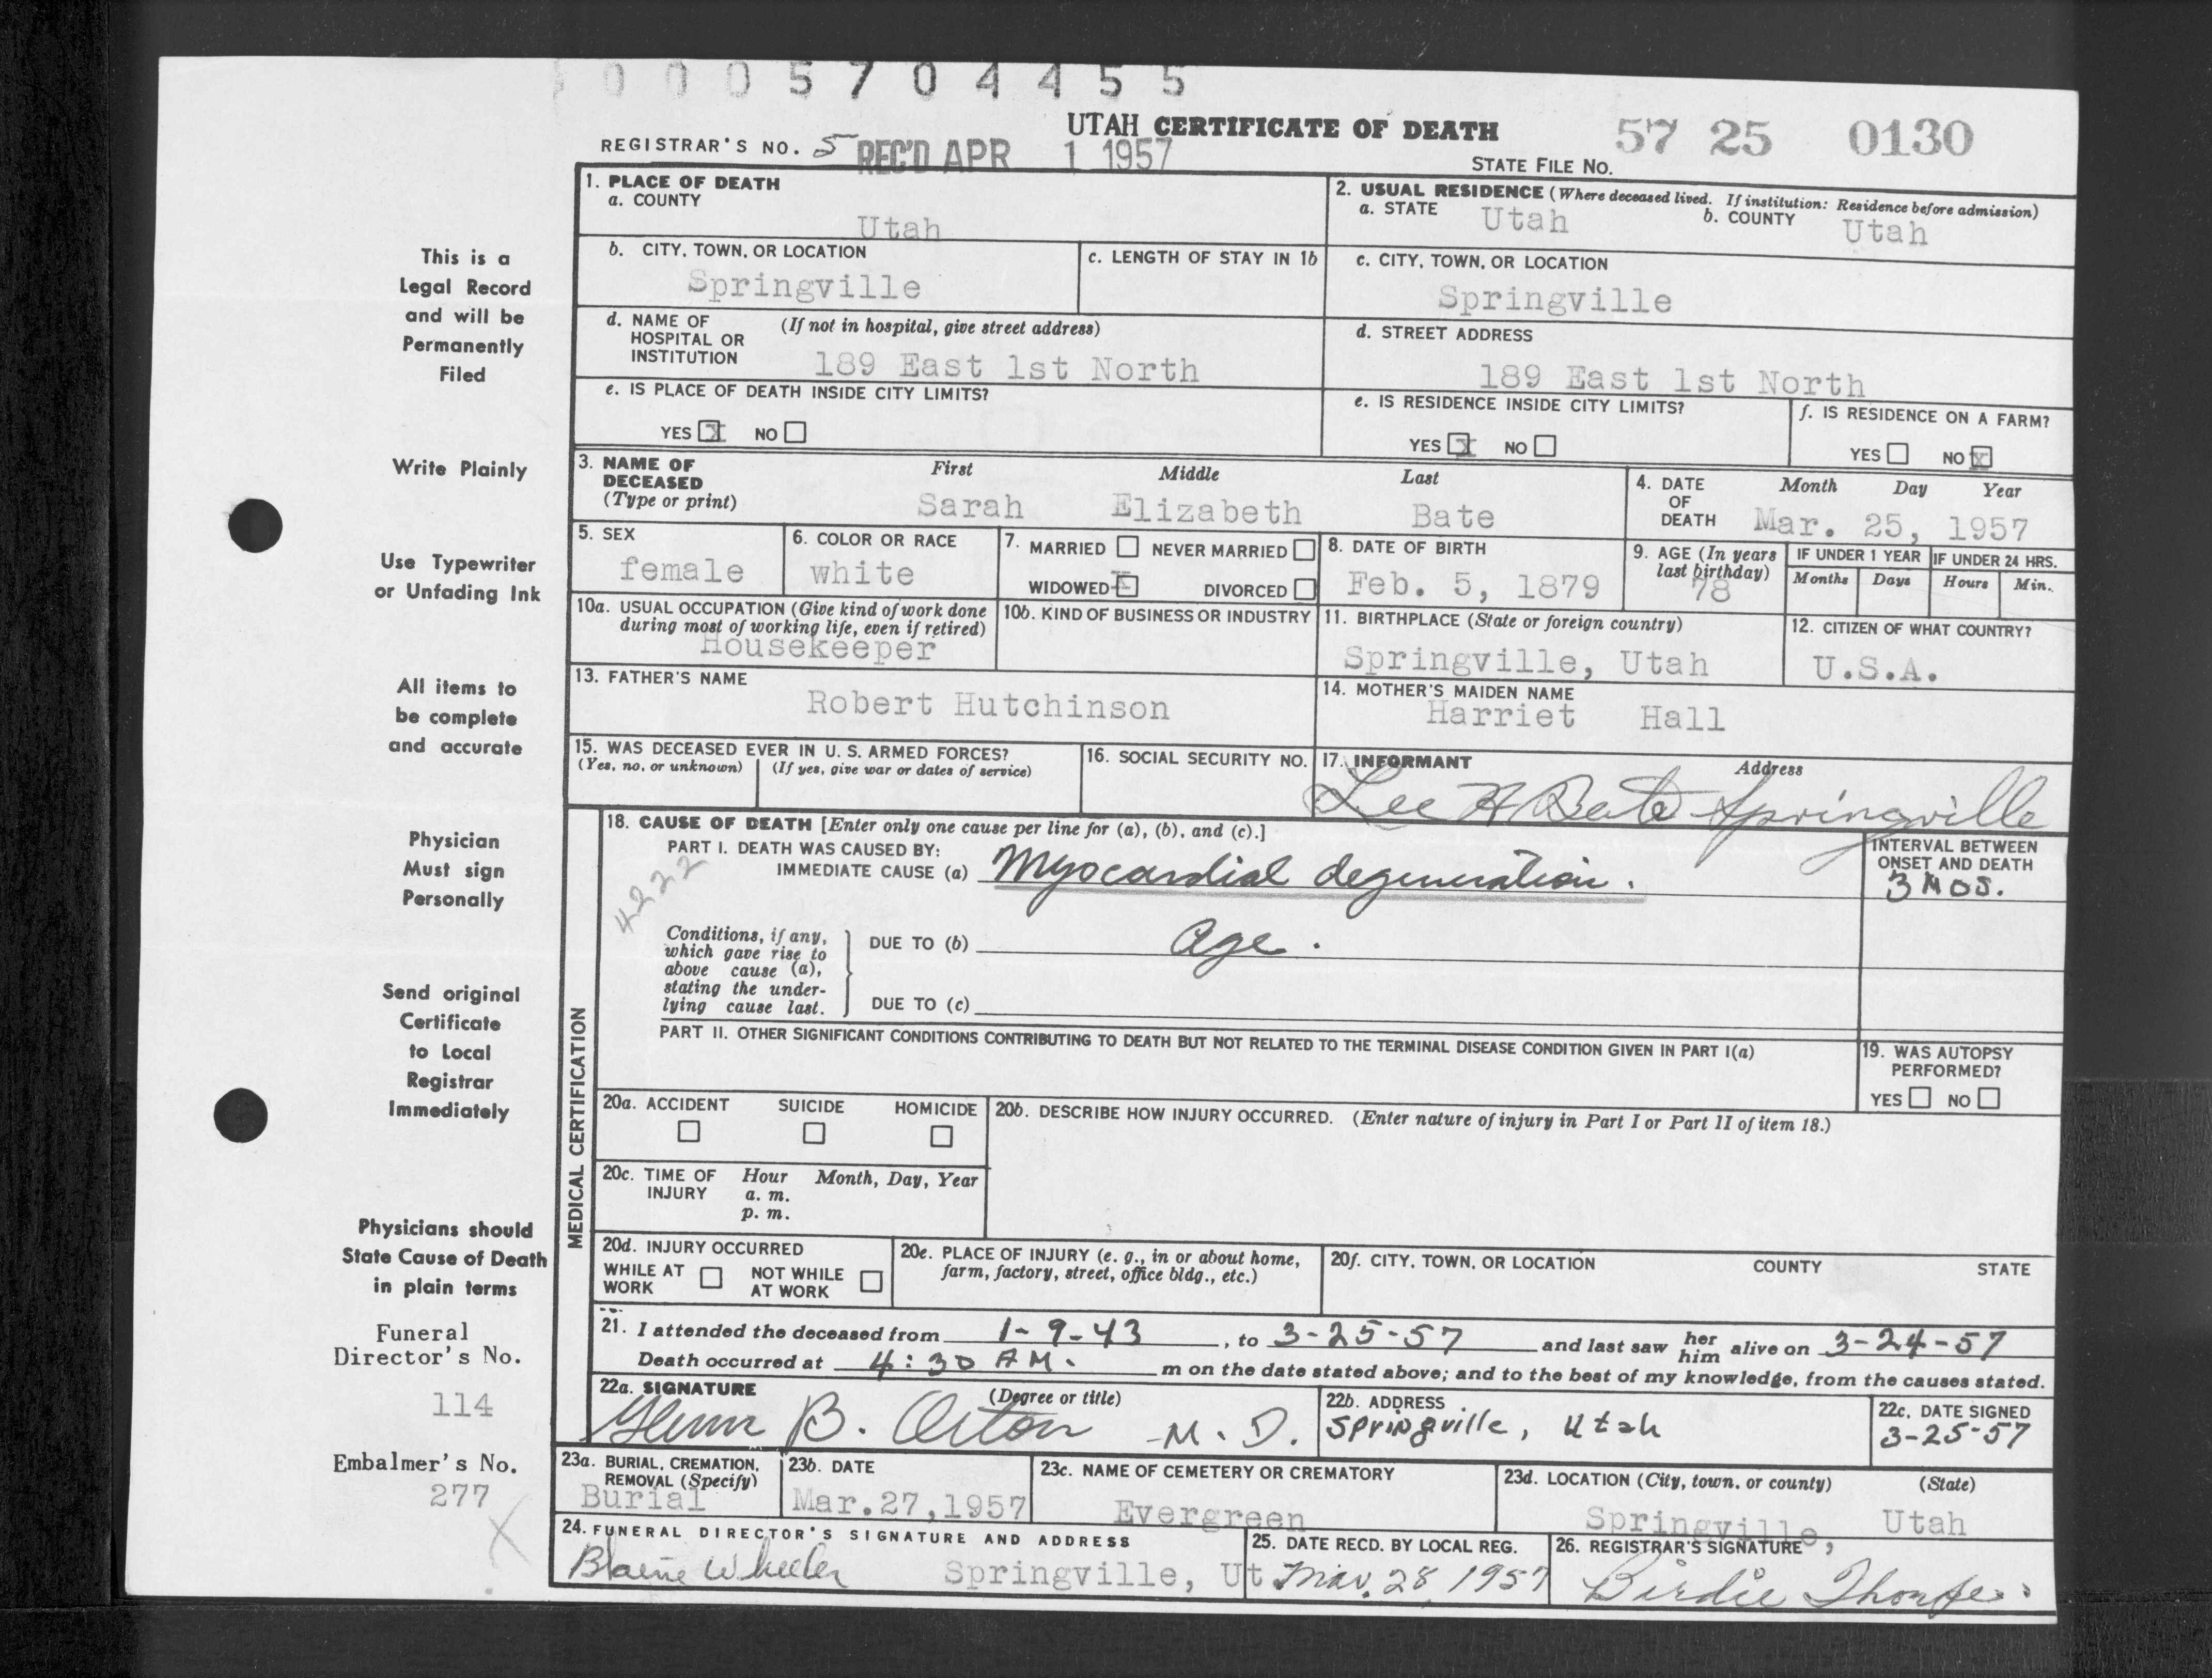 0005704455
UTAH CERTIFICATE OF DEATH 57 25 0130
REGISTRAR'S NO. 5 REC'D APR 1 1957 STATE FILE NO.
1. PLACE OF DEATH
a. COUNTY
Utah
2. USUAL RESIDENCE (Where deceased lived. If institution: Residence before admission)
a. STATE Utah b. COUNTY Utah
b. CITY, TOWN, OR LOCATION
Springville
c. LENGTH OF STAY IN 1b
c. CITY, TOWN, OR LOCATION
Springville
d. NAME OF HOSPITAL OR INSTITUTION (If not in hospital, give street address)
189 East 1st North
d. STREET ADDRESS
189 East 1st North
e. IS PLACE OF DEATH INSIDE CITY LIMITS?
YES X NO
e. IS RESIDENCE INSIDE CITY LIMITS?
YES X NO
f. IS RESIDENCE ON A FARM?
YES NO X
3. NAME OF DECEASED (Type or print)
First Middle Last
Sarah Elizabeth Bate
4. DATE OF DEATH Month Day Year
Mar. 25, 1957
5. SEX
female
6. COLOR OR RACE
white
7. MARRIED NEVER MARRIED
WIDOWED X DIVORCED
8. DATE OF BIRTH
Feb. 5, 1879
9. AGE (In years last birthday)
78
IF UNDER 1 YEAR
Months Days
IF UNDER 24 HRS.
Hours Min.
10a. USUAL OCCUPATION (Give kind of work done during most of working life, even if retired)
Housekeeper
10b. KIND OF BUSINESS OR INDUSTRY
11. BIRTHPLACE (State or foreign country)
Springville, Utah
12. CITIZEN OF WHAT COUNTRY?
U.S.A.
13. FATHER'S NAME
Robert Hutchinson
14. MOTHER'S MAIDEN NAME
Harriet Hall
15. WAS DECEASED EVER IN U. S. ARMED FORCES?
(Yes, no, or unknown) (If yes, give war or dates of service)
16. SOCIAL SECURITY NO.
17. INFORMANT Address
Lee H Bate Springville
MEDICAL CERTIFICATION
18. CAUSE OF DEATH [Enter only one cause per line for (a), (b), and (c).]
PART I. DEATH WAS CAUSED BY:
IMMEDIATE CAUSE (a) Myocardial degeneration.
4222
INTERVAL BETWEEN ONSET AND DEATH
3 MOS.
Conditions, if any, which gave rise to above cause (a), stating the underlying cause last.
DUE TO (b) Age.
DUE TO (c)
PART II. OTHER SIGNIFICANT CONDITIONS CONTRIBUTING TO DEATH BUT NOT RELATED TO THE TERMINAL DISEASE CONDITION GIVEN IN PART I(a)
19. WAS AUTOPSY PERFORMED?
YES NO
20a. ACCIDENT SUICIDE HOMICIDE
20b. DESCRIBE HOW INJURY OCCURRED. (Enter nature of injury in Part I or Part II of item 18.)
20c. TIME OF INJURY Hour Month, Day, Year
a. m.
p. m.
20d. INJURY OCCURRED
WHILE AT WORK NOT WHILE AT WORK
20e. PLACE OF INJURY (e. g., in or about home, farm, factory, street, office bldg., etc.)
20f. CITY, TOWN, OR LOCATION COUNTY STATE
21. I attended the deceased from 1-9-43, to 3-25-57 and last saw her him alive on 3-24-57
Death occurred at 4:30 AM. m on the date stated above; and to the best of my knowledge, from the causes stated.
22a. SIGNATURE (Degree or title)
Glenn B. Orton M.D.
22b. ADDRESS
Springville, Utah
22c. DATE SIGNED
3-25-57
23a. BURIAL, CREMATION, REMOVAL (Specify)
Burial
23b. DATE
Mar.27,1957
23c. NAME OF CEMETERY OR CREMATORY
Evergreen
23d. LOCATION (City, town, or county) (State)
Springville, Utah
24. FUNERAL DIRECTOR'S SIGNATURE AND ADDRESS
Blaine Wheeler Springville, Ut
25. DATE RECD. BY LOCAL REG.
Mar. 28, 1957
26. REGISTRAR'S SIGNATURE
Birdie Thorpe
This is a
Legal Record
and will be
Permanently
Filed
Write Plainly
Use Typewriter
or Unfading Ink
All items to
be complete
and accurate
Physician
Must sign
Personally
Send original
Certificate
to Local
Registrar
Immediately
Physicians should
State Cause of Death
in plain terms
Funeral
Director's No.
114
Embalmer's No.
277
X